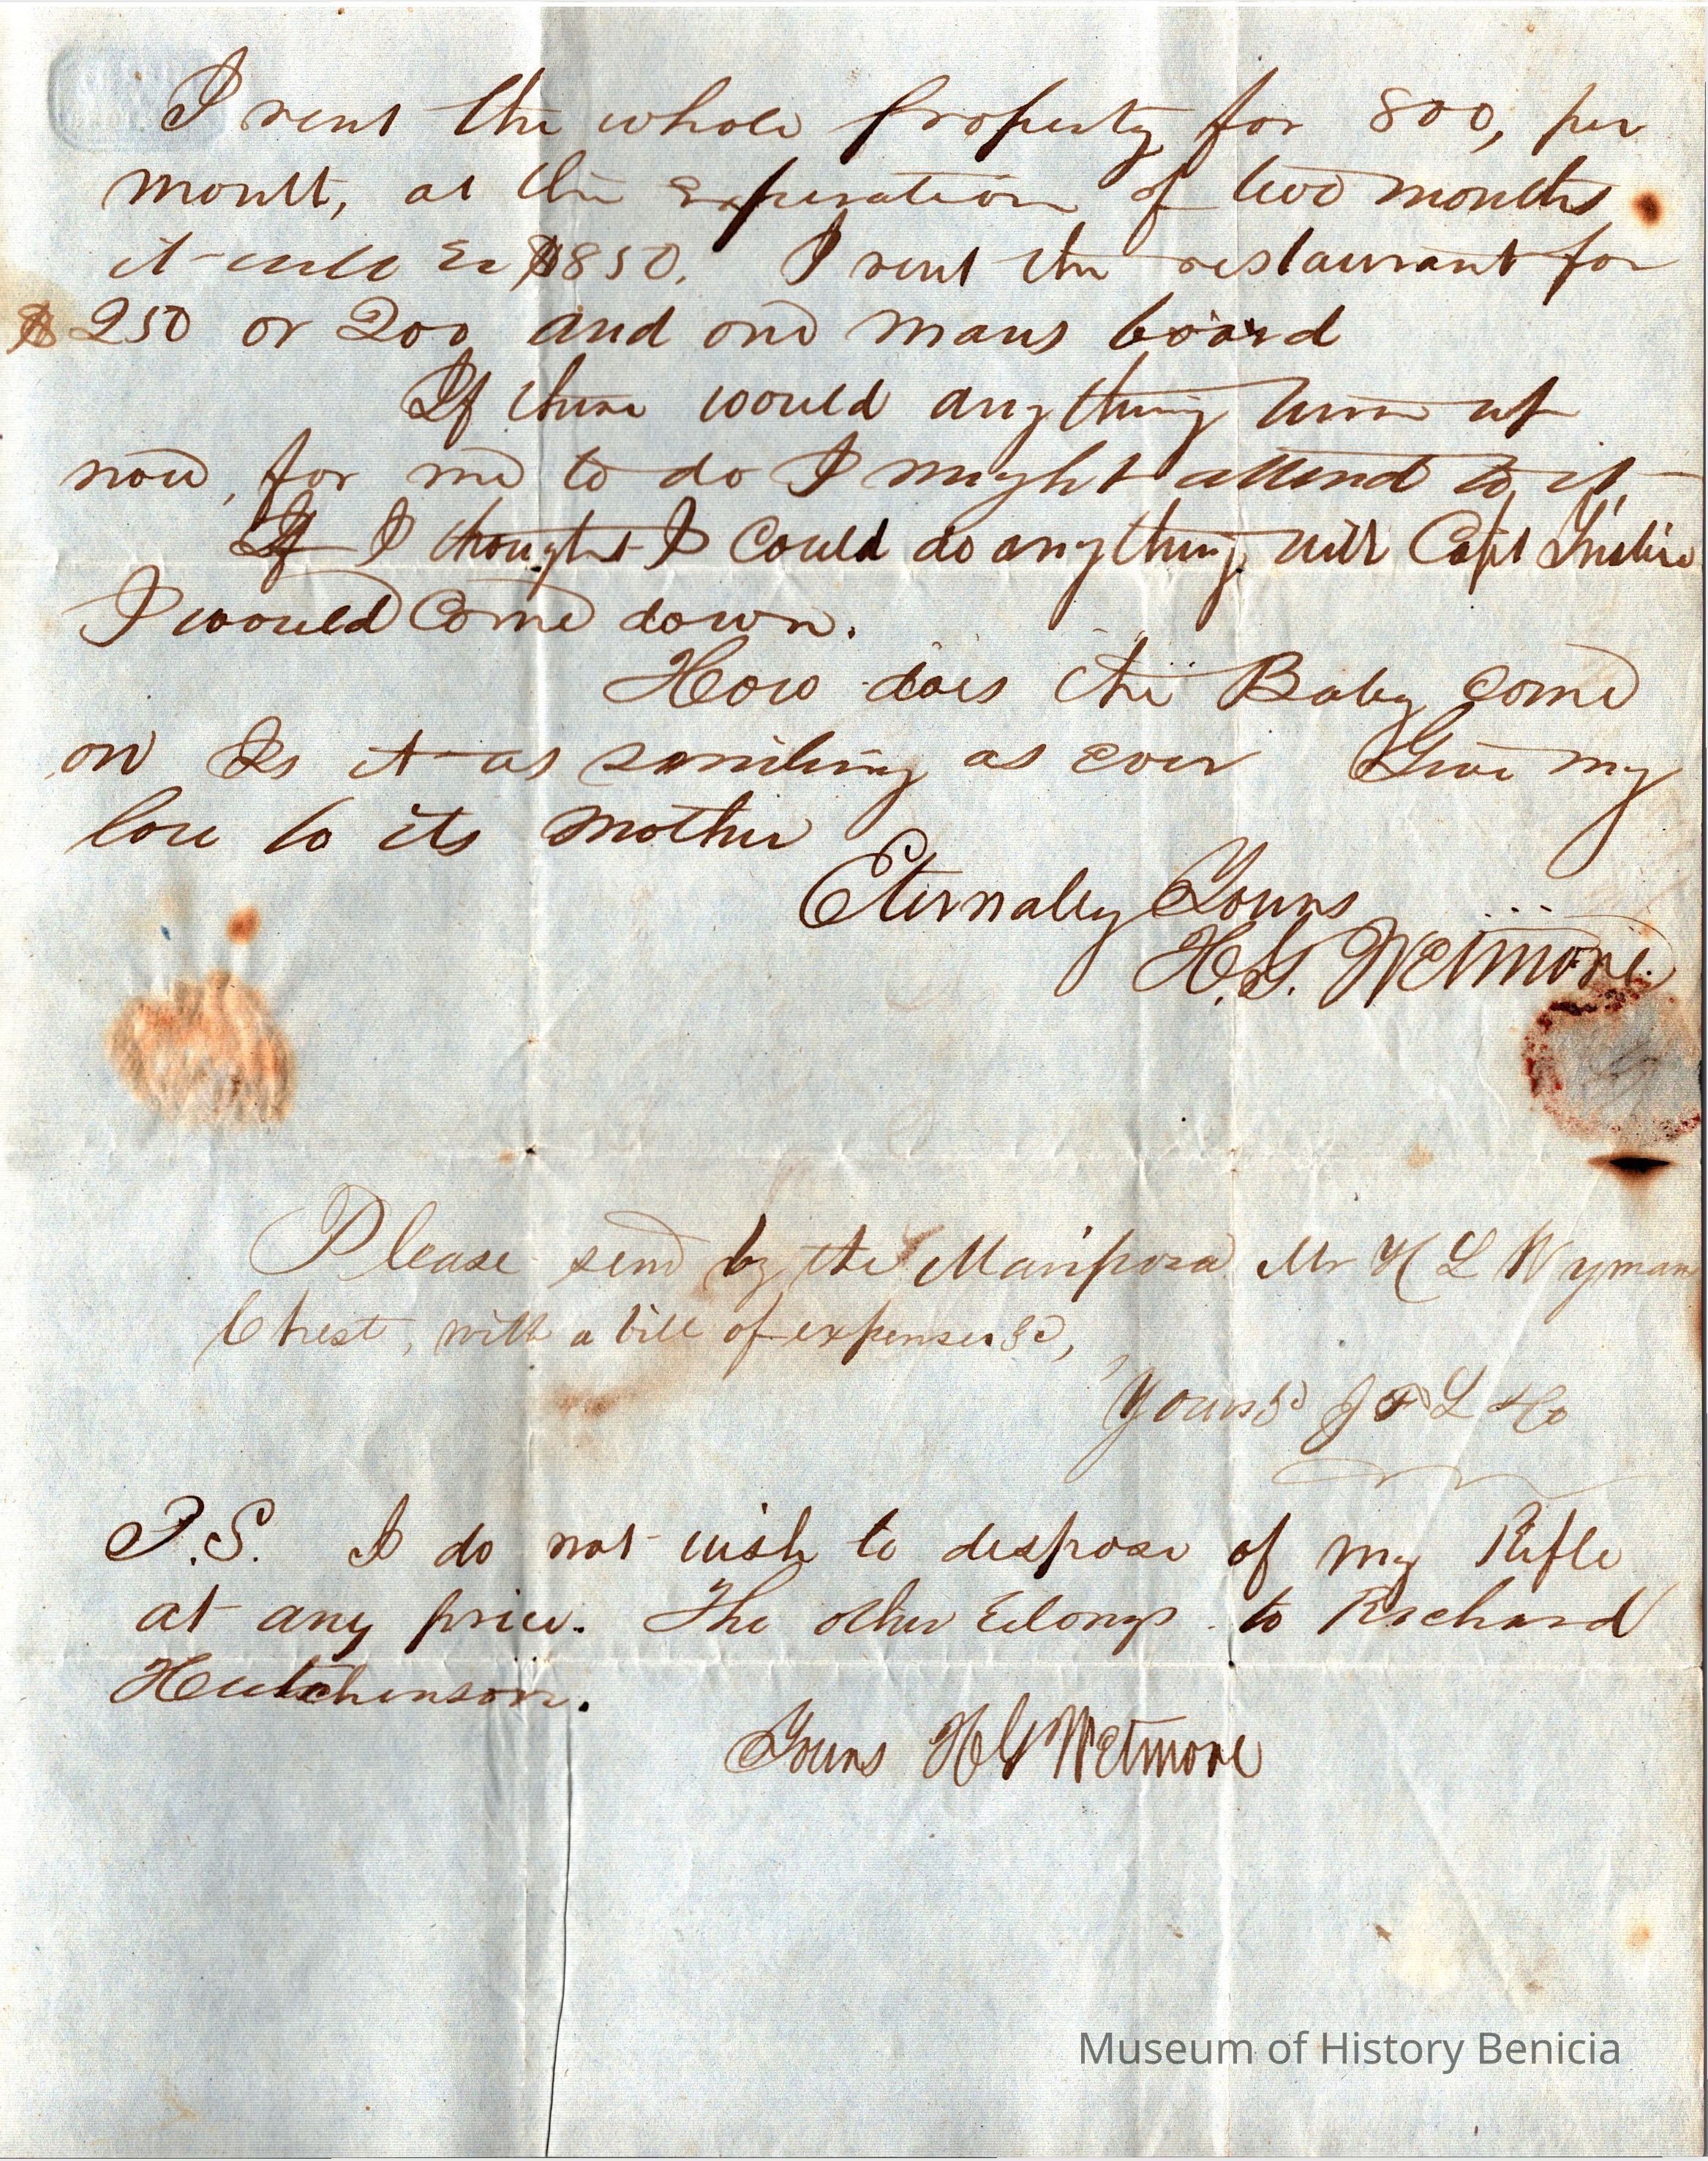 I rent the whole property for 800, per
month, at the experation of two months
it will be $850. I rent the restaurant for
$250 or 200 and one mans board
If there would any thing turn up
now, for me to do I might attend to it
If I thought I could do any thing with Capt
I would Come down.
How does the Baby come
on Is it as smiling as ever Give my
love to its mother
Eternaly Yours
H.G. Wetmore.
Please send by the Mariposa Mr H L Wyman
Chest, with a bill of expenses &c,
Yours &c
P.S. I do not wish to dispose of my Rifle
at any price. The other belongs to Richard
Hutchinson.
Yours HG Wetmore
Museum of History Benicia